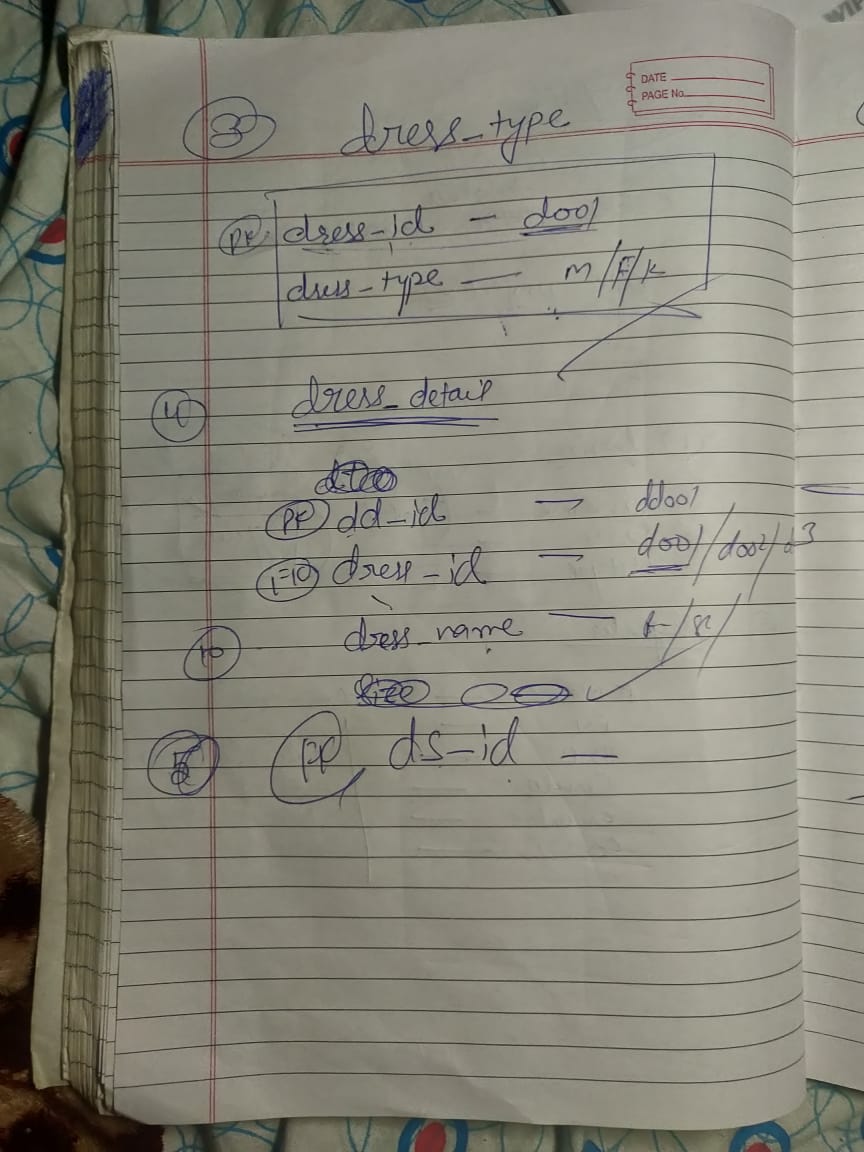 WIP
DATE
PAGE No.
3 dress_type
PK dress-id - d001
dress-type - M/F/K
4 dress_detail
PK dd-id - dd001
dress-id - d001/d002/d3
dress_name -
5 PK ds-id -